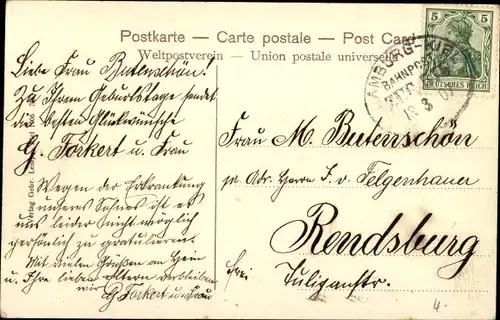 Postkarte — Carte postale — Post Card
Weltpostverein — Union postale universelle
5 5
DEUTSCHES REICH
HAMBURG-KIEL
BAHNPOST
ZUG
13 3 07
Liebe Frau Butenschön!
Zu Ihrem Geburtstage sendet
die besten Glückwünsche
G. Torkert u. Frau
Wegen der Erkrankung
unseres Sohnes ist es
uns leider nicht möglich
persönlich zu gratulieren.
Mit vielen Grüßen an Hein
u. Ihre lieben Eltern verbleiben
wir G. Torkert u. Frau
Frau M. Butenschön
pr. Adr. Herrn F. v. Felgenhauer
Rendsburg
frei
4.
Verlag Gebr.